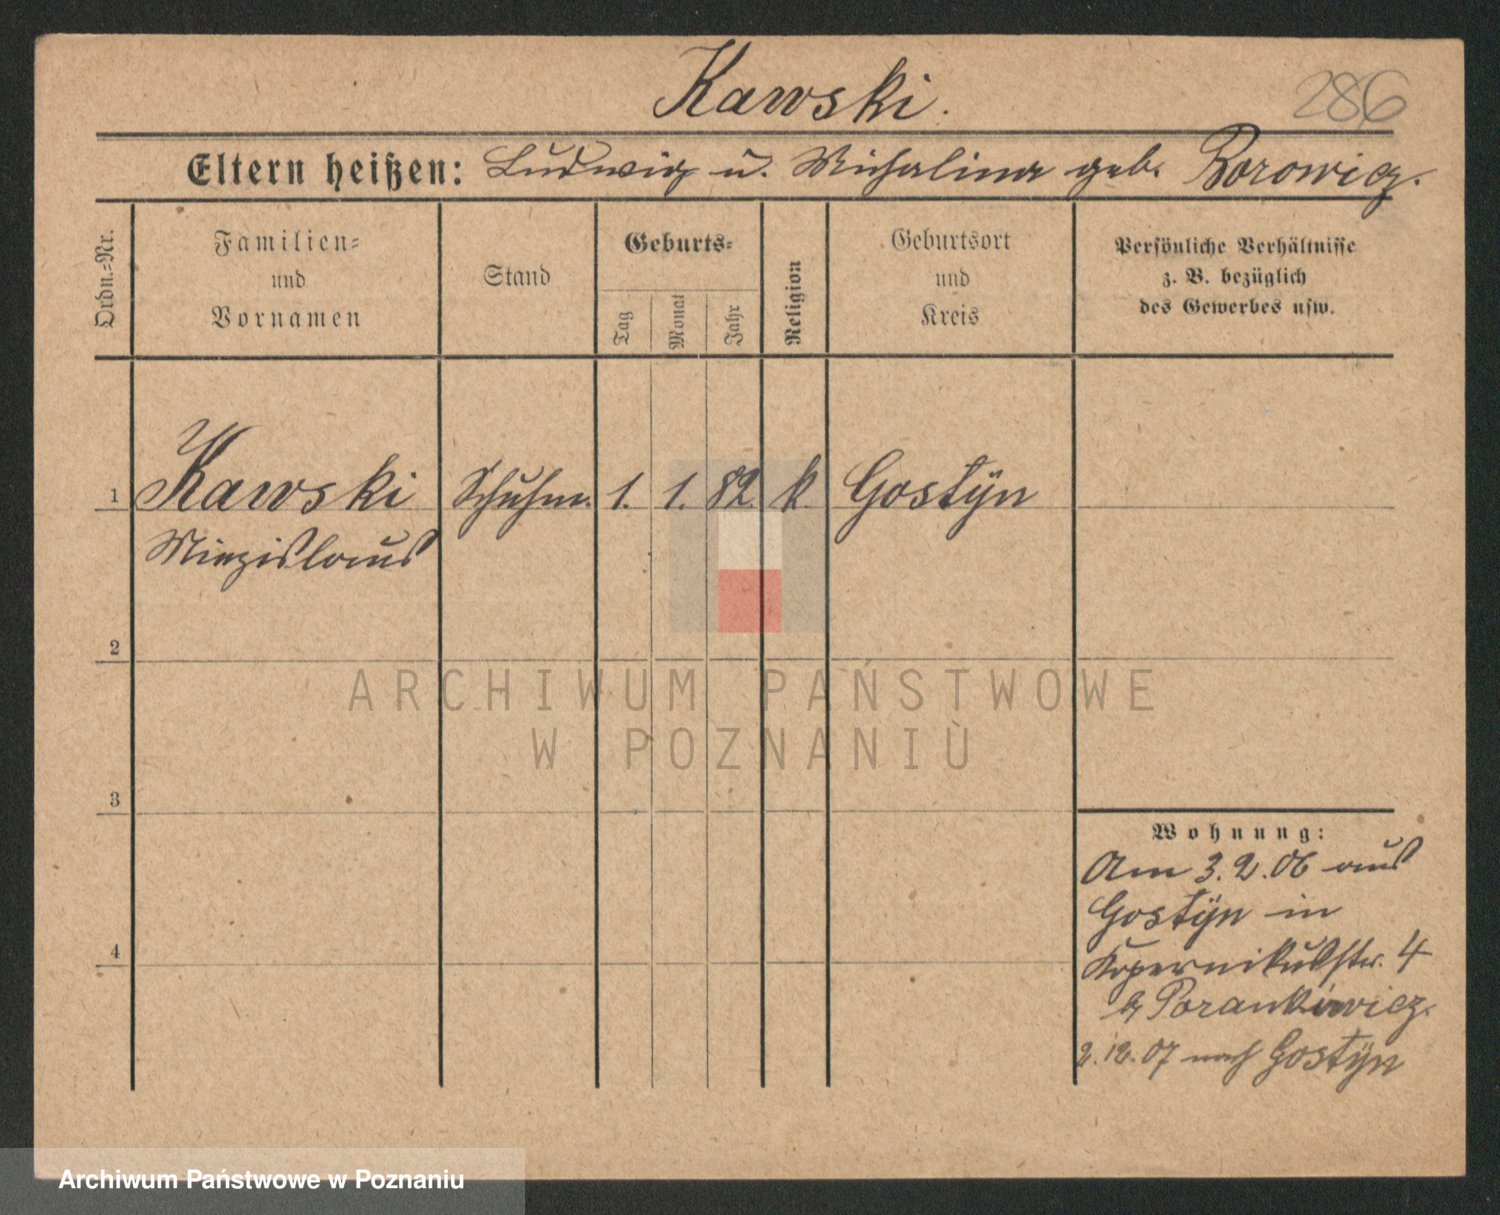 Kawski.
286
Eltern heißen: Ludwig u. Michalina geb. Borowicz.
Ordn.=Nr.
Familien=
und
Vornamen
Stand
Geburts=
Tag
Monat
Jahr
Religion
Geburtsort
und
Kreis
Persönliche Verhältnisse
z. B. bezüglich
des Gewerbes usw.
1 Kawski Schuhm. 1. 1. 82. k. Gostÿn
Miezislaus
2
ARCHIWUM PAŃSTWOWE
W POZNANIU
3
Wohnung:
Am 3.2.06 aus
Gostÿn in
Kopernikusstr. 4
b/ Porankiewicz.
2.12.07 nach Gostÿn
4
Archiwum Państwowe w Poznaniu